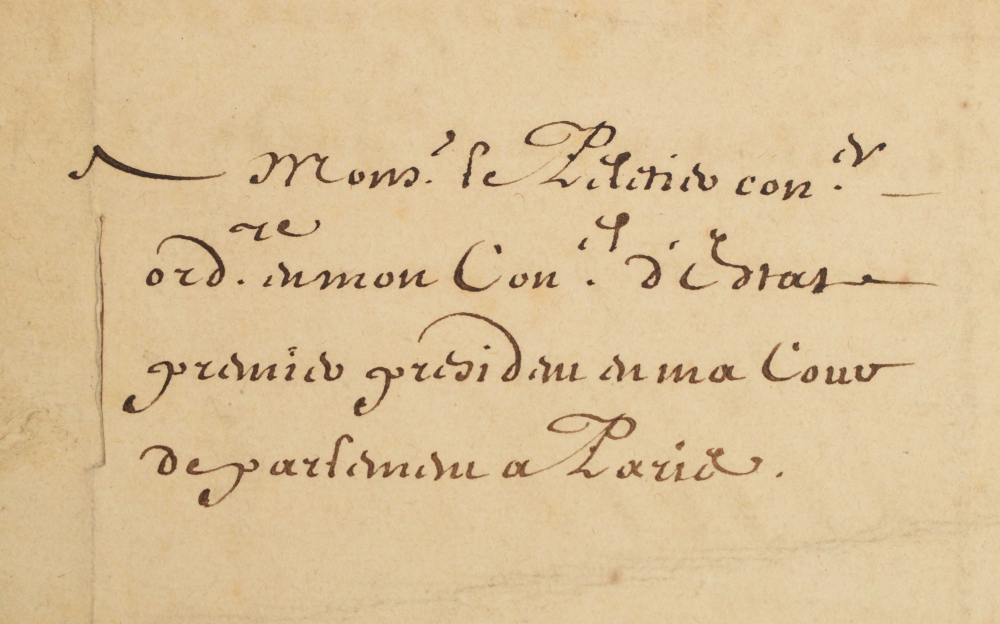 A Mons.r le Peletier con.er
ord.re en mon Con.el d'Estat
premier president en ma Cour
de parlement a Paris.